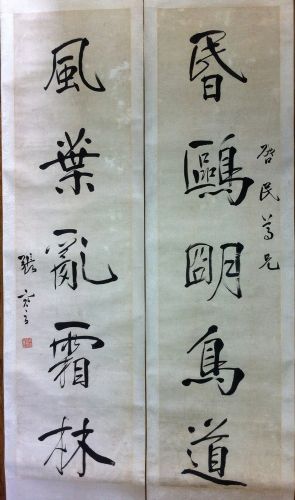 昏鷗明鳥道
啓民尊兄
風葉亂霜林
張